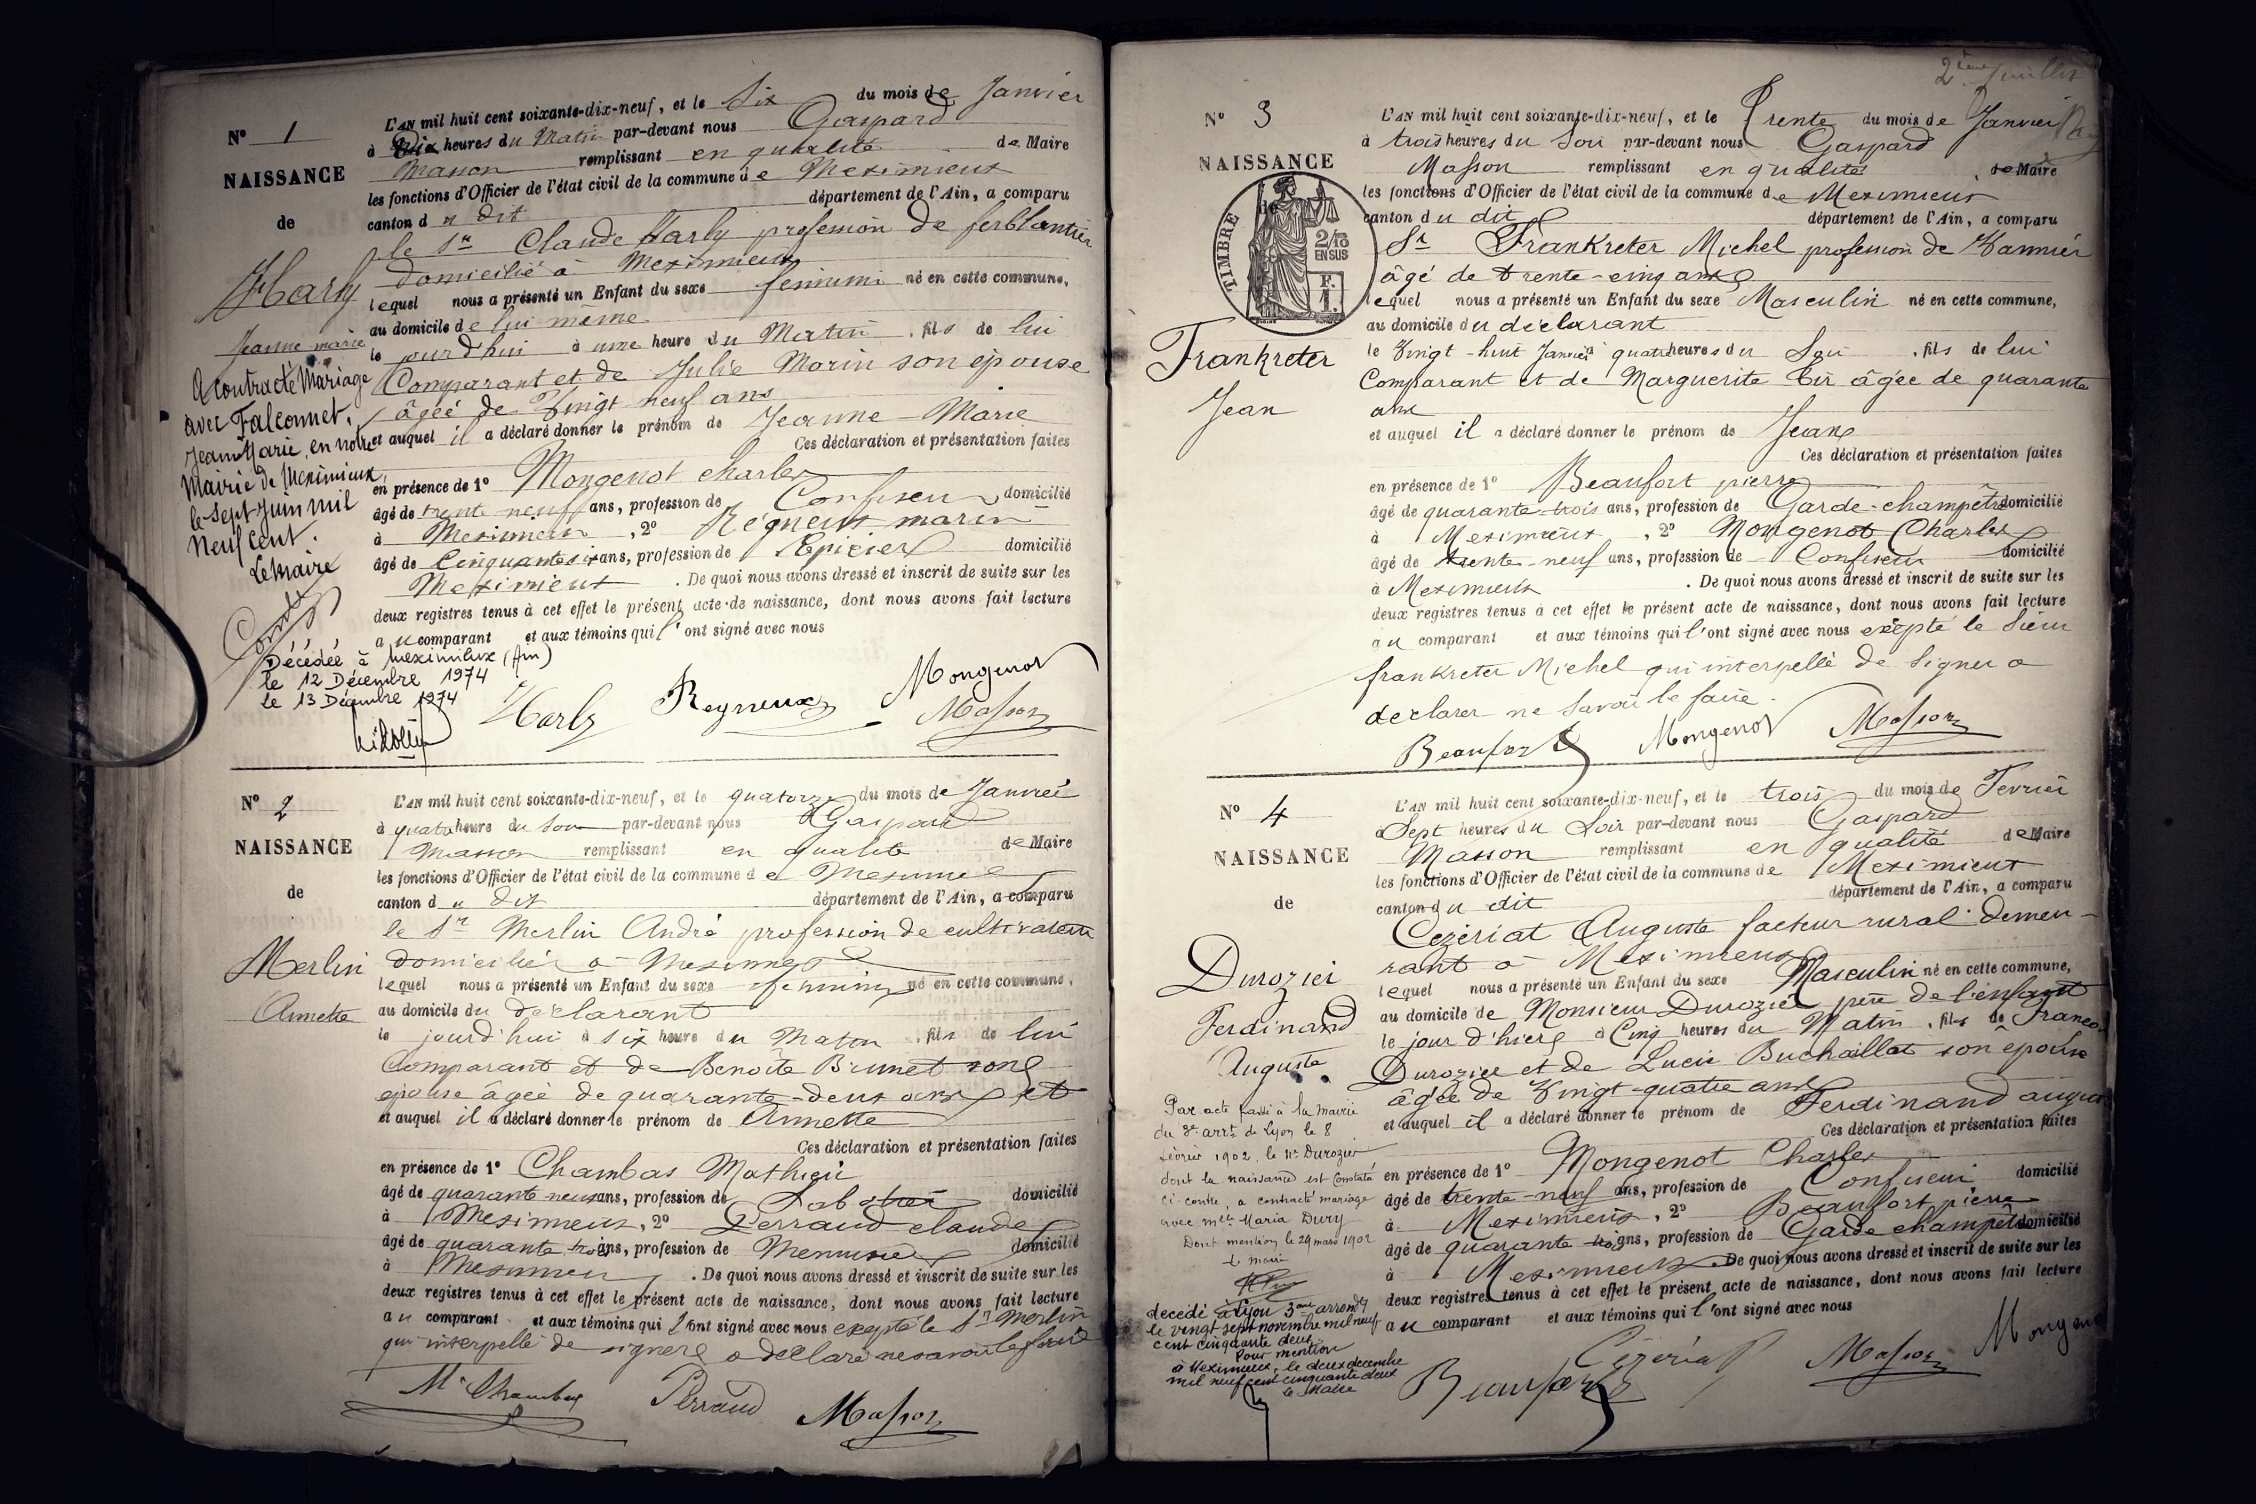 N° 1
NAISSANCE
de
Harly
Jeanne marie
A contracté Mariage
avec Falconnet,
Jean Marie, en notre
Mairie de Meximieux
le sept Juin mil
neuf cent.
Le Maire
Décédée à Meximieux (Ain)
le 12 Décembre 1974
le 13 Décembre 1974
L'AN mil huit cent soixante-dix-neuf, et le Six du mois de Janvier
à Dix heures du Matin par-devant nous Gaspard
Masson remplissant en qualité de Maire
les fonctions d'Officier de l'état civil de la commune de Meximieux
canton du dit département de l'Ain, a comparu
le Sr Claude Harly profession de ferblantier
domicilié à Meximieux
lequel nous a présenté un Enfant du sexe feminin né en cette commune,
au domicile de lui même
le jourd'hui à une heure du Matin, fils de lui
Comparant et de Julie Morin son épouse
âgée de Vingt neuf ans
et auquel il a déclaré donner le prénom de Jeanne-Marie
Ces déclaration et présentation faites
en présence de 1° Mongenot charles
âgé de trente neuf ans, profession de Confiseur domicilié
à Meximieux, 2° Régneux marin
âgé de Cinquante six ans, profession de Epicier domicilié
Meximieux. De quoi nous avons dressé et inscrit de suite sur les
deux registres tenus à cet effet le présent acte de naissance, dont nous avons fait lecture
au comparant et aux témoins qui l'ont signé avec nous
Harly Regneux Mongenot
Masson
N° 2
NAISSANCE
de
Merlin
Annette
L'AN mil huit cent soixante-dix-neuf, et le quatorze du mois de Janvier
à quatre heure du Soir par-devant nous Gaspard
Masson remplissant en qualité de Maire
les fonctions d'Officier de l'état civil de la commune de
canton du dit département de l'Ain, a comparu
le Sr Merlin André profession de cultivateur
domicilié à
lequel nous a présenté un Enfant du sexe feminin né en cette commune,
au domicile du déclarant
le jourd'hui à six heure du Maton, fils de lui
Comparant et de Benoîte Brunet son
épouse âgée de quarante-deux ans et
et auquel il a déclaré donner le prénom de Annette
Ces déclaration et présentation faites
en présence de 1° Chambas Mathieu
âgé de quarante neuf ans, profession de domicilié
à Meximieux, 2° Perraud claude
âgé de quarante trois ans, profession de Menuisier domicilié
à . De quoi nous avons dressé et inscrit de suite sur les
deux registres tenus à cet effet le présent acte de naissance, dont nous avons fait lecture
au comparant et aux témoins qui l'ont signé avec nous excepté le Sr Merlin
qui interpellé de signer a déclaré ne savoir le faire
M. Chambas Perraud Masson
2ème feuillet
N° 3
NAISSANCE
de
TIMBRE
2/10
EN SUS
F.
1.
Frankreter
Jean
L'AN mil huit cent soixante-dix-neuf, et le trente du mois de Janvier
à trois heures du Soir par-devant nous Gaspard
Masson remplissant en qualité de Maire
les fonctions d'Officier de l'état civil de la commune de Meximieux
canton du dit département de l'Ain, a comparu
Sr Frankreter Michel profession de Vannier
âgé de trente-cinq ans
lequel nous a présenté un Enfant du sexe Masculin né en cette commune,
au domicile du déclarant
le Vingt-huit Janvier à quatre heures du Soir, fils de lui
Comparant et de Marguerite âgée de quarante
ans
et auquel il a déclaré donner le prénom de Jean
Ces déclaration et présentation faites
en présence de 1° Beaufort pierre
âgé de quarante-trois ans, profession de Garde-champêtre domicilié
à Meximieux, 2° Mongenot Charles
âgé de trente-neuf ans, profession de Confiseur domicilié
à Meximieux. De quoi nous avons dressé et inscrit de suite sur les
deux registres tenus à cet effet le présent acte de naissance, dont nous avons fait lecture
au comparant et aux témoins qui l'ont signé avec nous excepté le Sieur
frankreter Michel qui interpellé de signer a
declarer ne savoir le faire.
Beaufort Mongenot Masson
N° 4
NAISSANCE
de
Durozier
Ferdinand
Auguste
Par acte passé à la mairie
du 3e arrt de Lyon le 8
février 1902, le Sr Durozier
dont la naissance est constatée
ci-contre, a contracté mariage
avec Mlle Maria Dury
Dont mention le 29 mars 1902
Le maire
décédé à Lyon 3ème arrondt
le vingt sept novembre mil neuf
cent cinquante deux
Pour mention
à Meximieux, le deux décembre
mil neuf cent cinquante deux
le Maire
L'AN mil huit cent soixante-dix-neuf, et le trois du mois de Fevrier
à Sept heures du Soir par-devant nous Gaspard
Masson remplissant en qualité de Maire
les fonctions d'Officier de l'état civil de la commune de Meximieux
canton du dit département de l'Ain, a comparu
Cezériat Auguste facteur rural demeu-
rant à Meximieux
lequel nous a présenté un Enfant du sexe Masculin né en cette commune,
au domicile de Monsieur Durozier père de l'enfant
le jour d'hier à Cinq heures du Matin, fils de
Durozier et de Lucie Buchaillat son épouse
âgée de Vingt-quatre ans
et auquel il a déclaré donner le prénom de Ferdinand
Ces déclaration et présentation faites
en présence de 1° Mongenot Charles
âgé de trente-neuf ans, profession de Confiseur domicilié
à Meximieux, 2° Beaufort pierre
âgé de quarante trois ans, profession de Garde champêtre domicilié
à Meximieux. De quoi nous avons dressé et inscrit de suite sur les
deux registres tenus à cet effet le présent acte de naissance, dont nous avons fait lecture
au comparant et aux témoins qui l'ont signé avec nous
Beaufort Cézériat Masson Mongenot